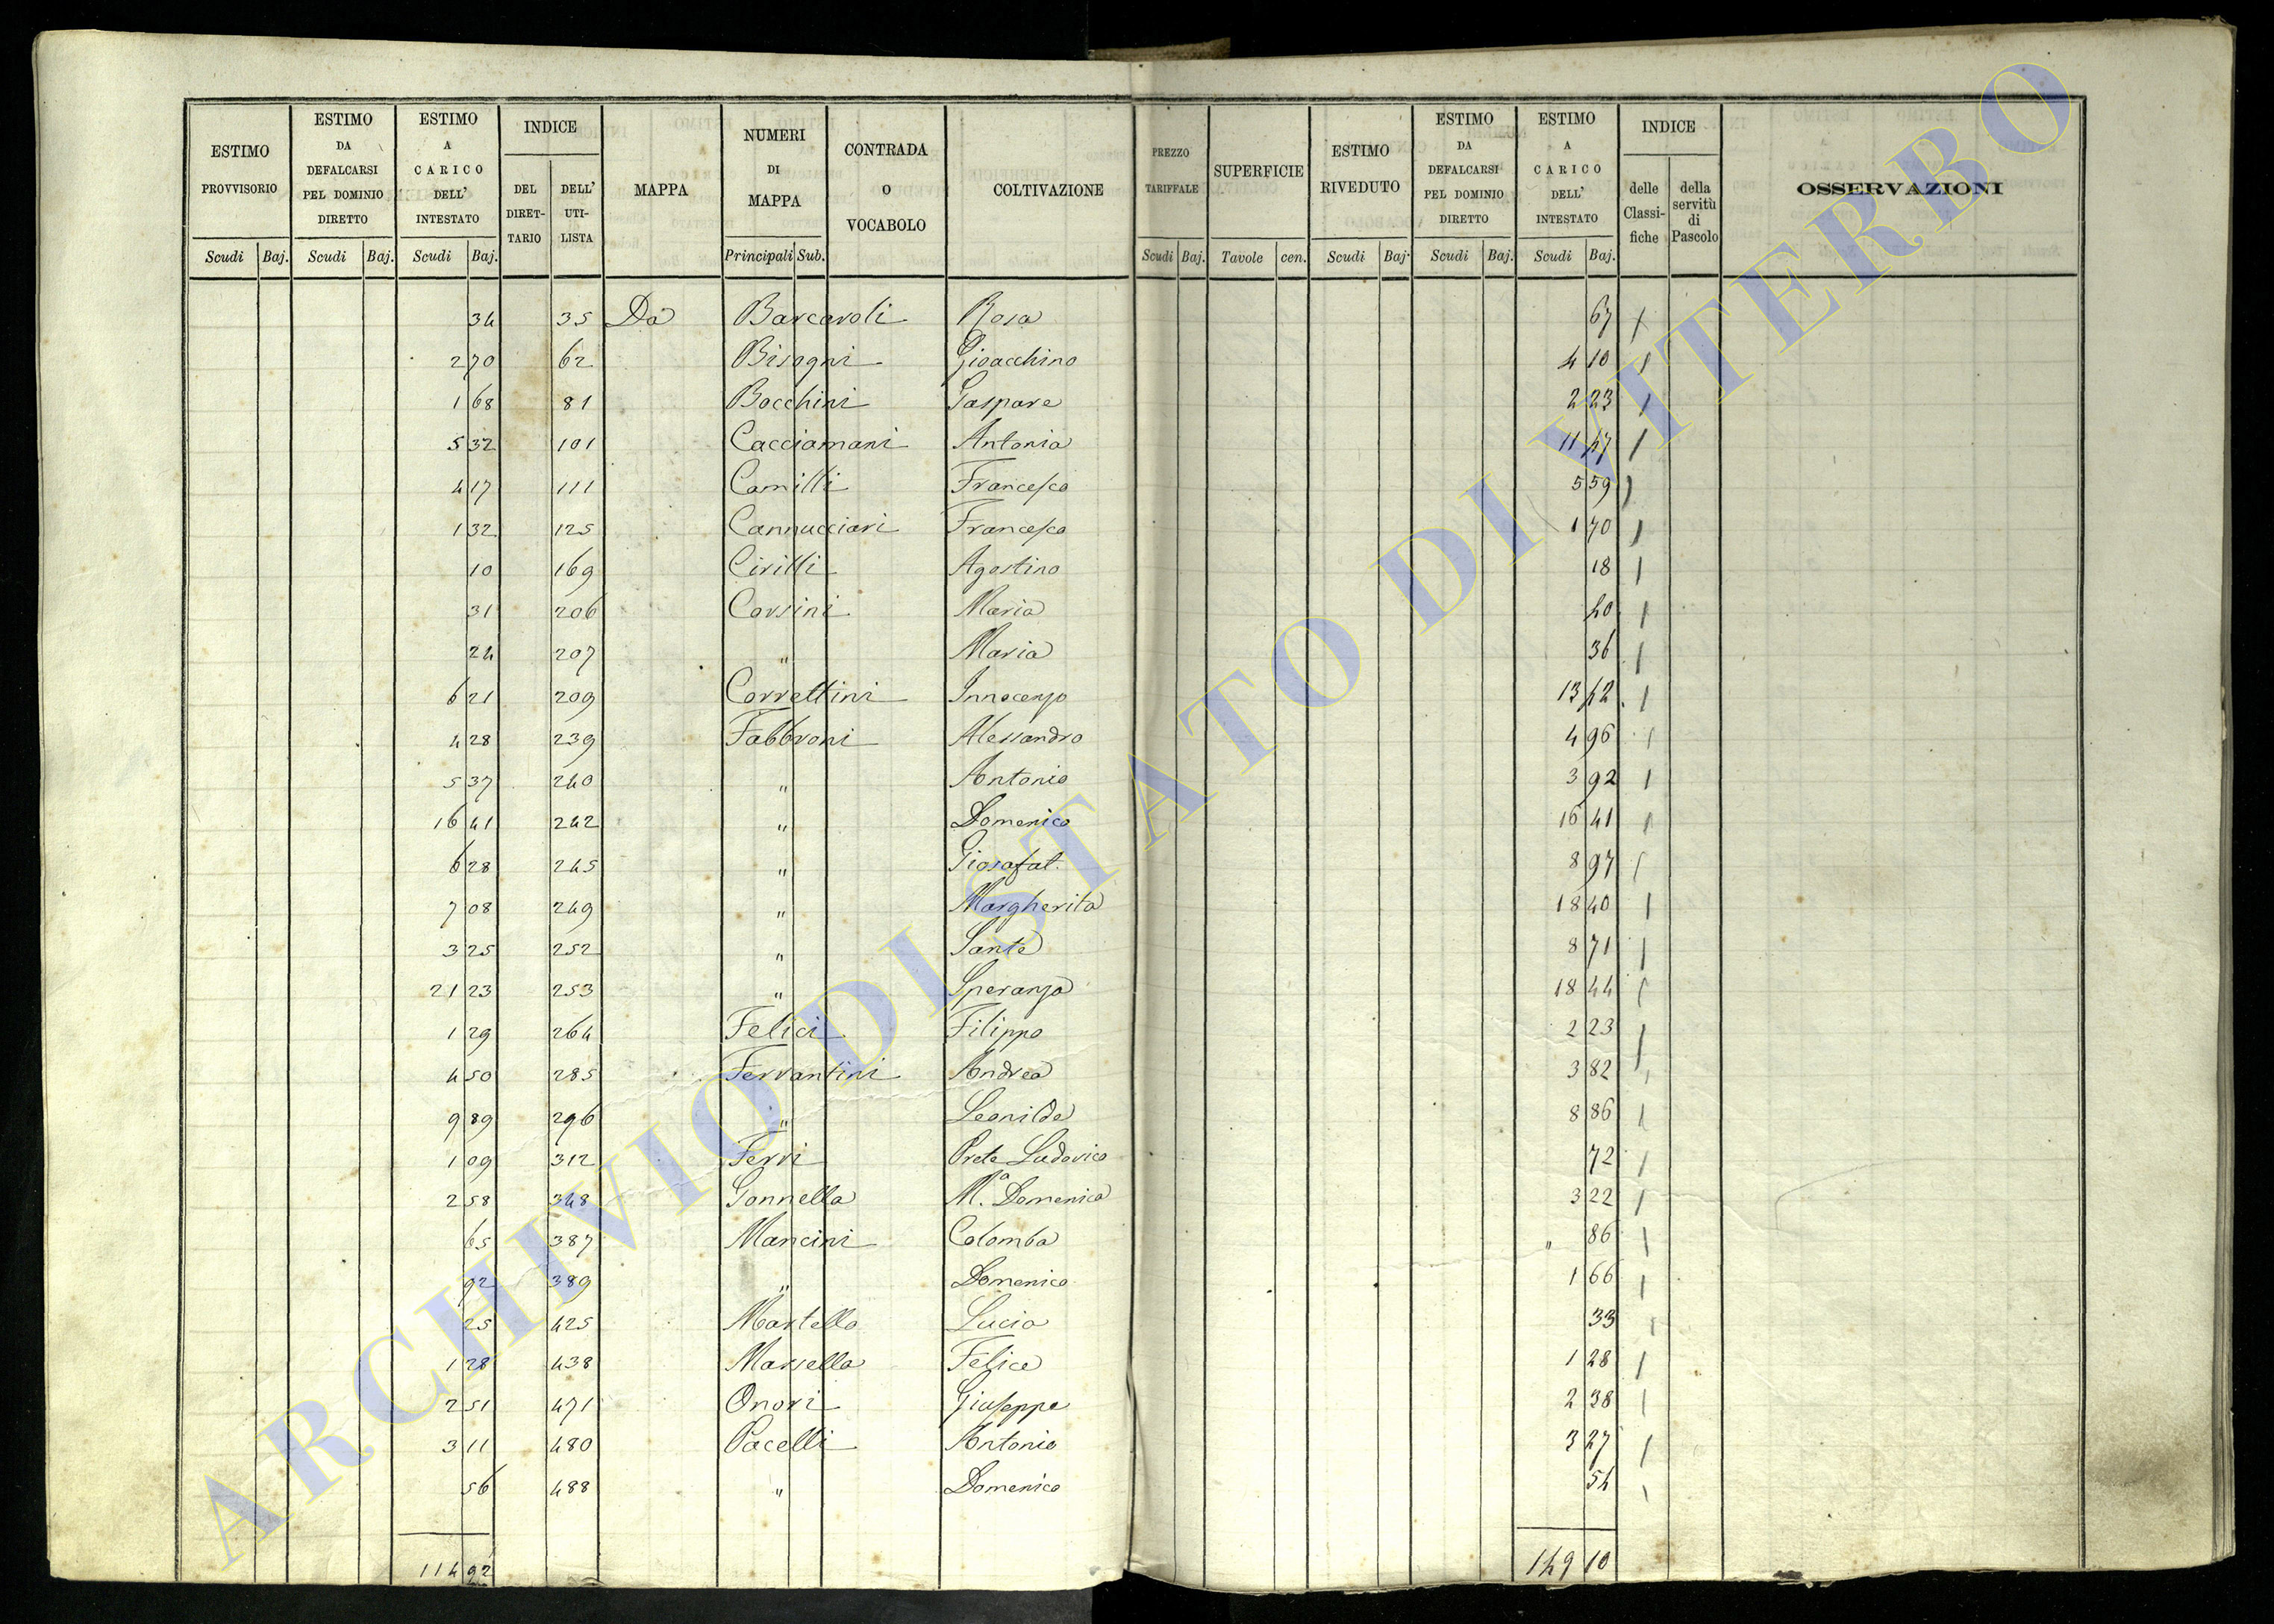 ESTIMO PROVVISORIO Scudi Baj.
ESTIMO DA DEFALCARSI PEL DOMINIO DIRETTO Scudi Baj.
ESTIMO A CARICO DELL' INTESTATO Scudi Baj.
INDICE DEL DIRET-TARIO DELL' UTI-LISTA
MAPPA
NUMERI DI MAPPA Principali Sub.
CONTRADA O VOCABOLO
COLTIVAZIONE
PREZZO TARIFFALE Scudi Baj.
SUPERFICIE Tavole cen.
ESTIMO RIVEDUTO Scudi Baj.
ESTIMO DA DEFALCARSI PEL DOMINIO DIRETTO Scudi Baj.
ESTIMO A CARICO DELL' INTESTATO Scudi Baj.
INDICE delle Classi-fiche della servitù di Pascolo
OSSERVAZIONI
34 35 Da Barcaroli Rosa 67
2 70 62 Bisogni Gioacchino 4 10
1 68 81 Bocchini Gaspare 2 23
5 32 101 Cacciamani Antonia 11 47
4 17 111 Camilli Francesco 5 59
1 32 125 Cannucciari Francesco 1 70
10 169 Cirilli Agostino 18
31 206 Corsini Maria 40
24 207 " Maria 36
6 21 209 Correttini Innocenzo 13 42
4 28 239 Fabbroni Alessandro 4 96
5 37 240 " Antonio 3 92
16 41 242 " Domenico 16 41
6 28 245 " Giosafat. 8 97
7 08 249 " Margherita 18 40
3 25 252 " Sante 8 71
21 23 253 " Speranza 18 44
1 29 264 Felici Filippo 2 23
4 50 285 Ferrantini Andrea 3 82
9 89 296 " Leonilde 8 86
1 09 312 Ferri Prete Ludovico 72
2 58 348 Gonnella M.a Domenica 3 22
65 387 Mancini Colomba " 86
92 389 " Domenico 1 66
25 425 Martella Lucia 33
1 28 438 Marsella Felice 1 28
2 51 471 Onori Giuseppe 2 38
3 11 480 Pacelli Antonio 3 27
56 488 " Domenico 54
114 92 149 10
ARCHIVIO DI STATO DI VITERBO